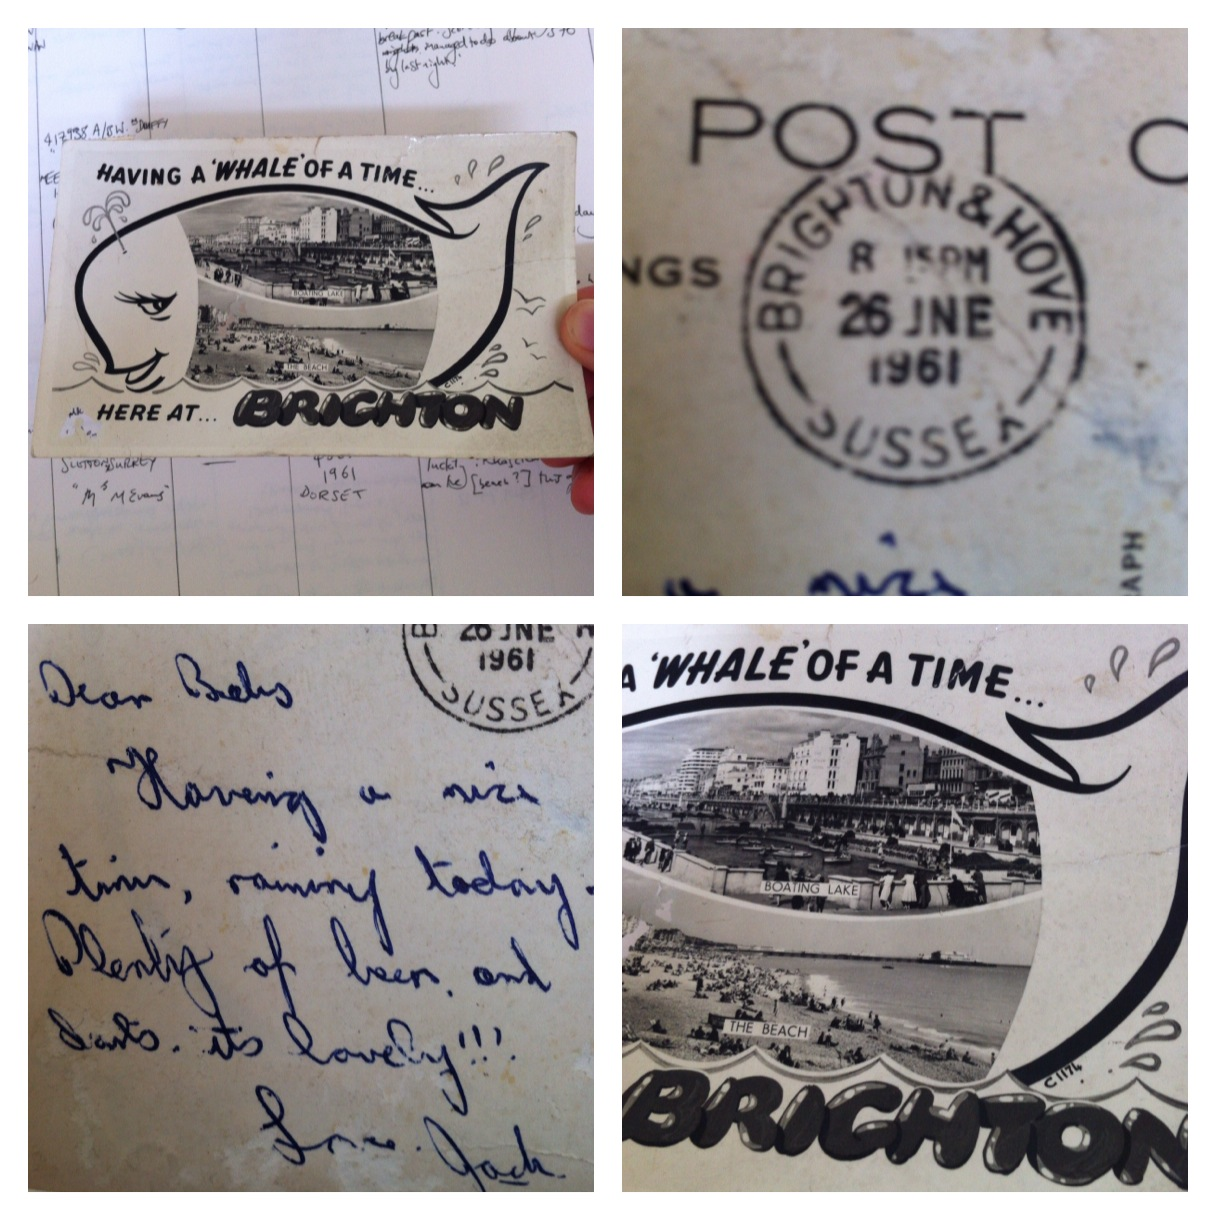 breakfast.
managed to do about
by last night.
417938 A/BW.
HAVING A 'WHALE' OF A TIME...
BOATING LAKE
THE BEACH
C1174
HERE AT... BRIGHTON
SUTTON SURREY
1961
DORSET
"Mrs M Evans"
POST O
NGS
BRIGHTON & HOVE
8 15PM
26 JNE
1961
SUSSEX
nice
APH
26 JNE
1961
SUSSEX
Dear Babs
Having a nice
time, raining today.
Plenty of beer, and
darts. it's lovely!!!
Love. Jack.
A 'WHALE' OF A TIME...
BOATING LAKE
THE BEACH
C1174
BRIGHTON